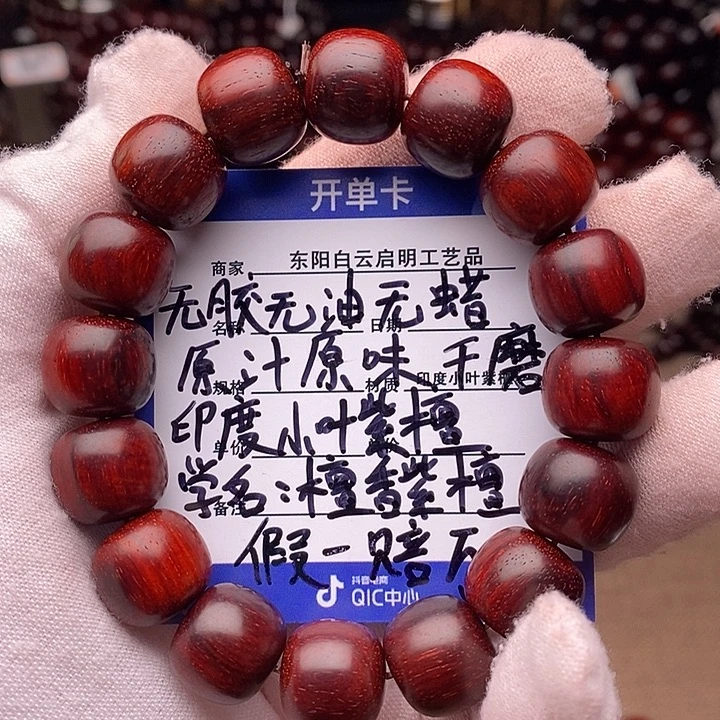 开单卡
商家 东阳白云启明工艺品
无胶无油无蜡
名称 日期
原汁原味干磨
规格 材质 印度小叶紫檀
印度小叶紫檀
单价
学名:檀香紫檀
备注
假一赔万
抖音电商
QIC中心